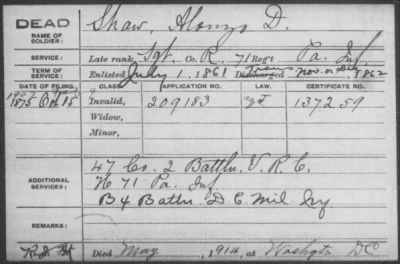 DEAD
NAME OF SOLDIER: Shaw, Alonzo D.
SERVICE: Late rank Sgt, Co. R, 71 Regt Pa. Inf
TERM OF SERVICE: Enlisted July 1, 1861 Discharged Trans Nov. or Dec, 1862
DATE OF FILING. CLASS. APPLICATION NO. LAW. CERTIFICATE NO.
1875 Oct 15 Invalid, 209183 137259
Widow,
Minor,
47 Co. 2 Battln. V. R. C.
ADDITIONAL SERVICES: K 71 Pa. Inf
B 4 Battn. D. C. Mil. Inf
REMARKS:
Died May, 1914, at Washgtn DC